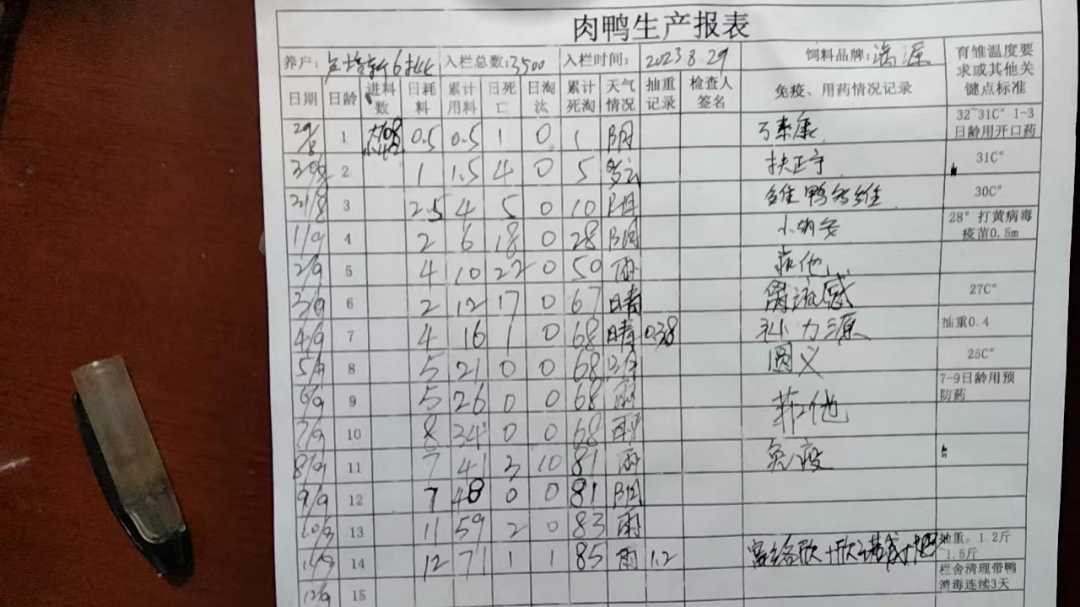 肉鸭生产报表
养户: 入栏总数:3500 入栏时间: 2023 8 29 饲料品牌: 育雏温度要求或其他关键点标准
日期 日龄 进料数 日耗料 累计用料 日死亡 日淘汰 累计死淘 天气情况 抽重记录 检查人签名 免疫、用药情况记录
29/8 1 0.5 0.5 1 0 1 阴 32~31C° 1-3日龄用开口药
30/8 2 1 1.5 4 0 5 多云 扶正宁 31C°
31/8 3 2.5 4 5 0 10 阴 30C°
1/9 4 2 6 18 0 28 阴 28° 打黄病毒疫苗0.5m
2/9 5 4 10 22 0 50 雨
3/9 6 2 12 17 0 67 晴 27C°
4/9 7 4 16 1 0 68 晴 0.38 抽重0.4
5/9 8 5 21 0 0 68 圆义 25C°
6/9 9 5 26 0 0 68 雨 7-9日龄用预防药
7/9 10 8 34 0 0 68 雨
8/9 11 7 41 3 10 81 雨 免疫
9/9 12 7 48 0 0 81 阴
10/9 13 11 59 2 0 83 雨
11/9 14 12 71 1 1 85 雨 1.2 抽重: 1.2斤~1.5斤
12/9 15 栏舍清理带鸭消毒连续3天